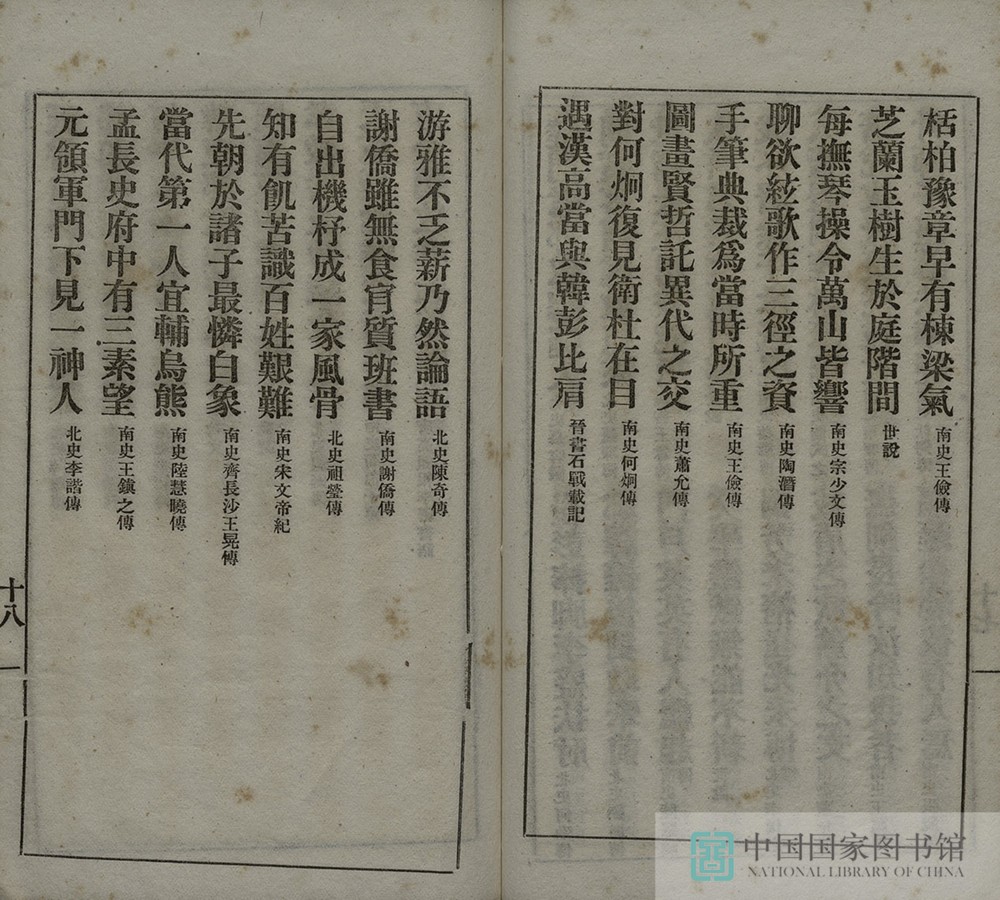 栝柏豫章早有棟梁氣 南史王儉傳
芝蘭玉樹生於庭階間 世説
每撫琴操令萬山皆響 南史宗少文傳
聊欲絃歌作三徑之資 南史陶潛傳
手筆典裁爲當時所重 南史王儉傳
圖畫賢哲託異代之交 南史蕭允傳
對何炯復見衛杜在目 南史何炯傳
遇漢高當與韓彭比肩 晉書石勒載記
游雅不乏薪乃然論語 北史陳奇傳
謝僑雖無食肎質班書 南史謝僑傳
自出機杼成一家風骨 北史祖瑩傳
知有飢苦識百姓艱難 南史宋文帝紀
先朝於諸子最憐白象 南史齊長沙王晃傳
當代第一人宜輔烏熊 南史陸慧曉傳
孟長史府中有三素望 南史王鎮之傳
元領軍門下見一神人 北史李諧傳
十八
中国国家图书馆
NATIONAL LIBRARY OF CHINA